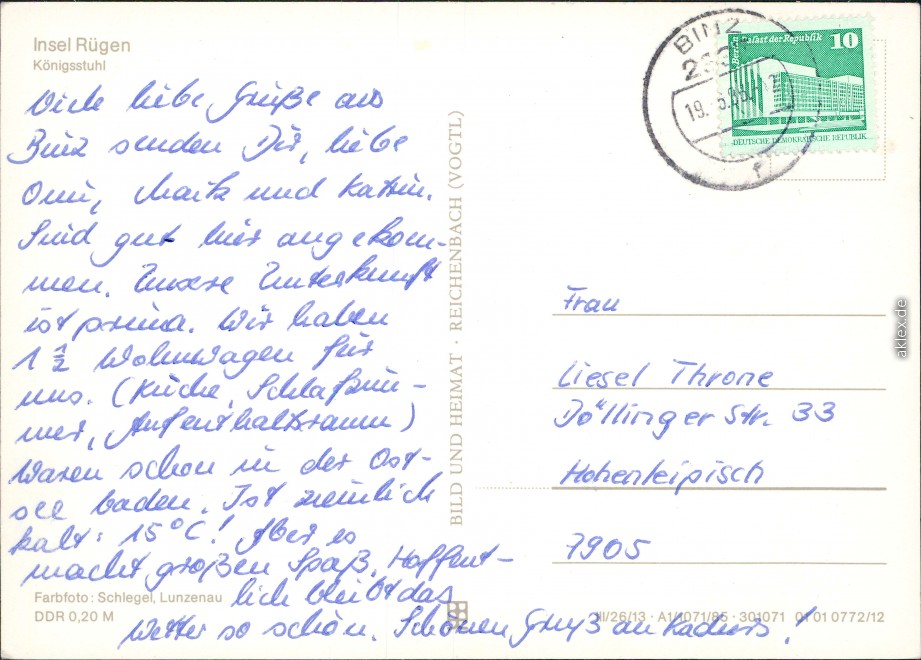 Insel Rügen
Königsstuhl
Viele liebe Grüße aus
Binz senden Dir, liebe
Omi, Maik und Katrin.
Sind gut hier angekom-
men. Unsere Unterkunft
ist prima. Wir haben
1 1/2 Wohnwagen für
uns. (Küche, Schlafzim-
mer, Aufenthaltsraum)
Waren schon in der Ost-
see baden. Ist ziemlich
kalt: 15°C! Aber es
macht großen Spaß. Hoffent-
lich bleibt das
Wetter so schön. Schönen Gruß an
Farbfoto: Schlegel, Lunzenau
DDR 0,20 M
BILD UND HEIMAT · REICHENBACH (VOGTL)
BINZ
19.
Berlin Palast der Republik 10
DEUTSCHE DEMOKRATISCHE REPUBLIK
Frau
Liesel Throne
Döllinger Str. 33
Hohenleipisch
7905
III/26/13 · A1/1071/85 · 301071 01 01 0772/12
aklex.de